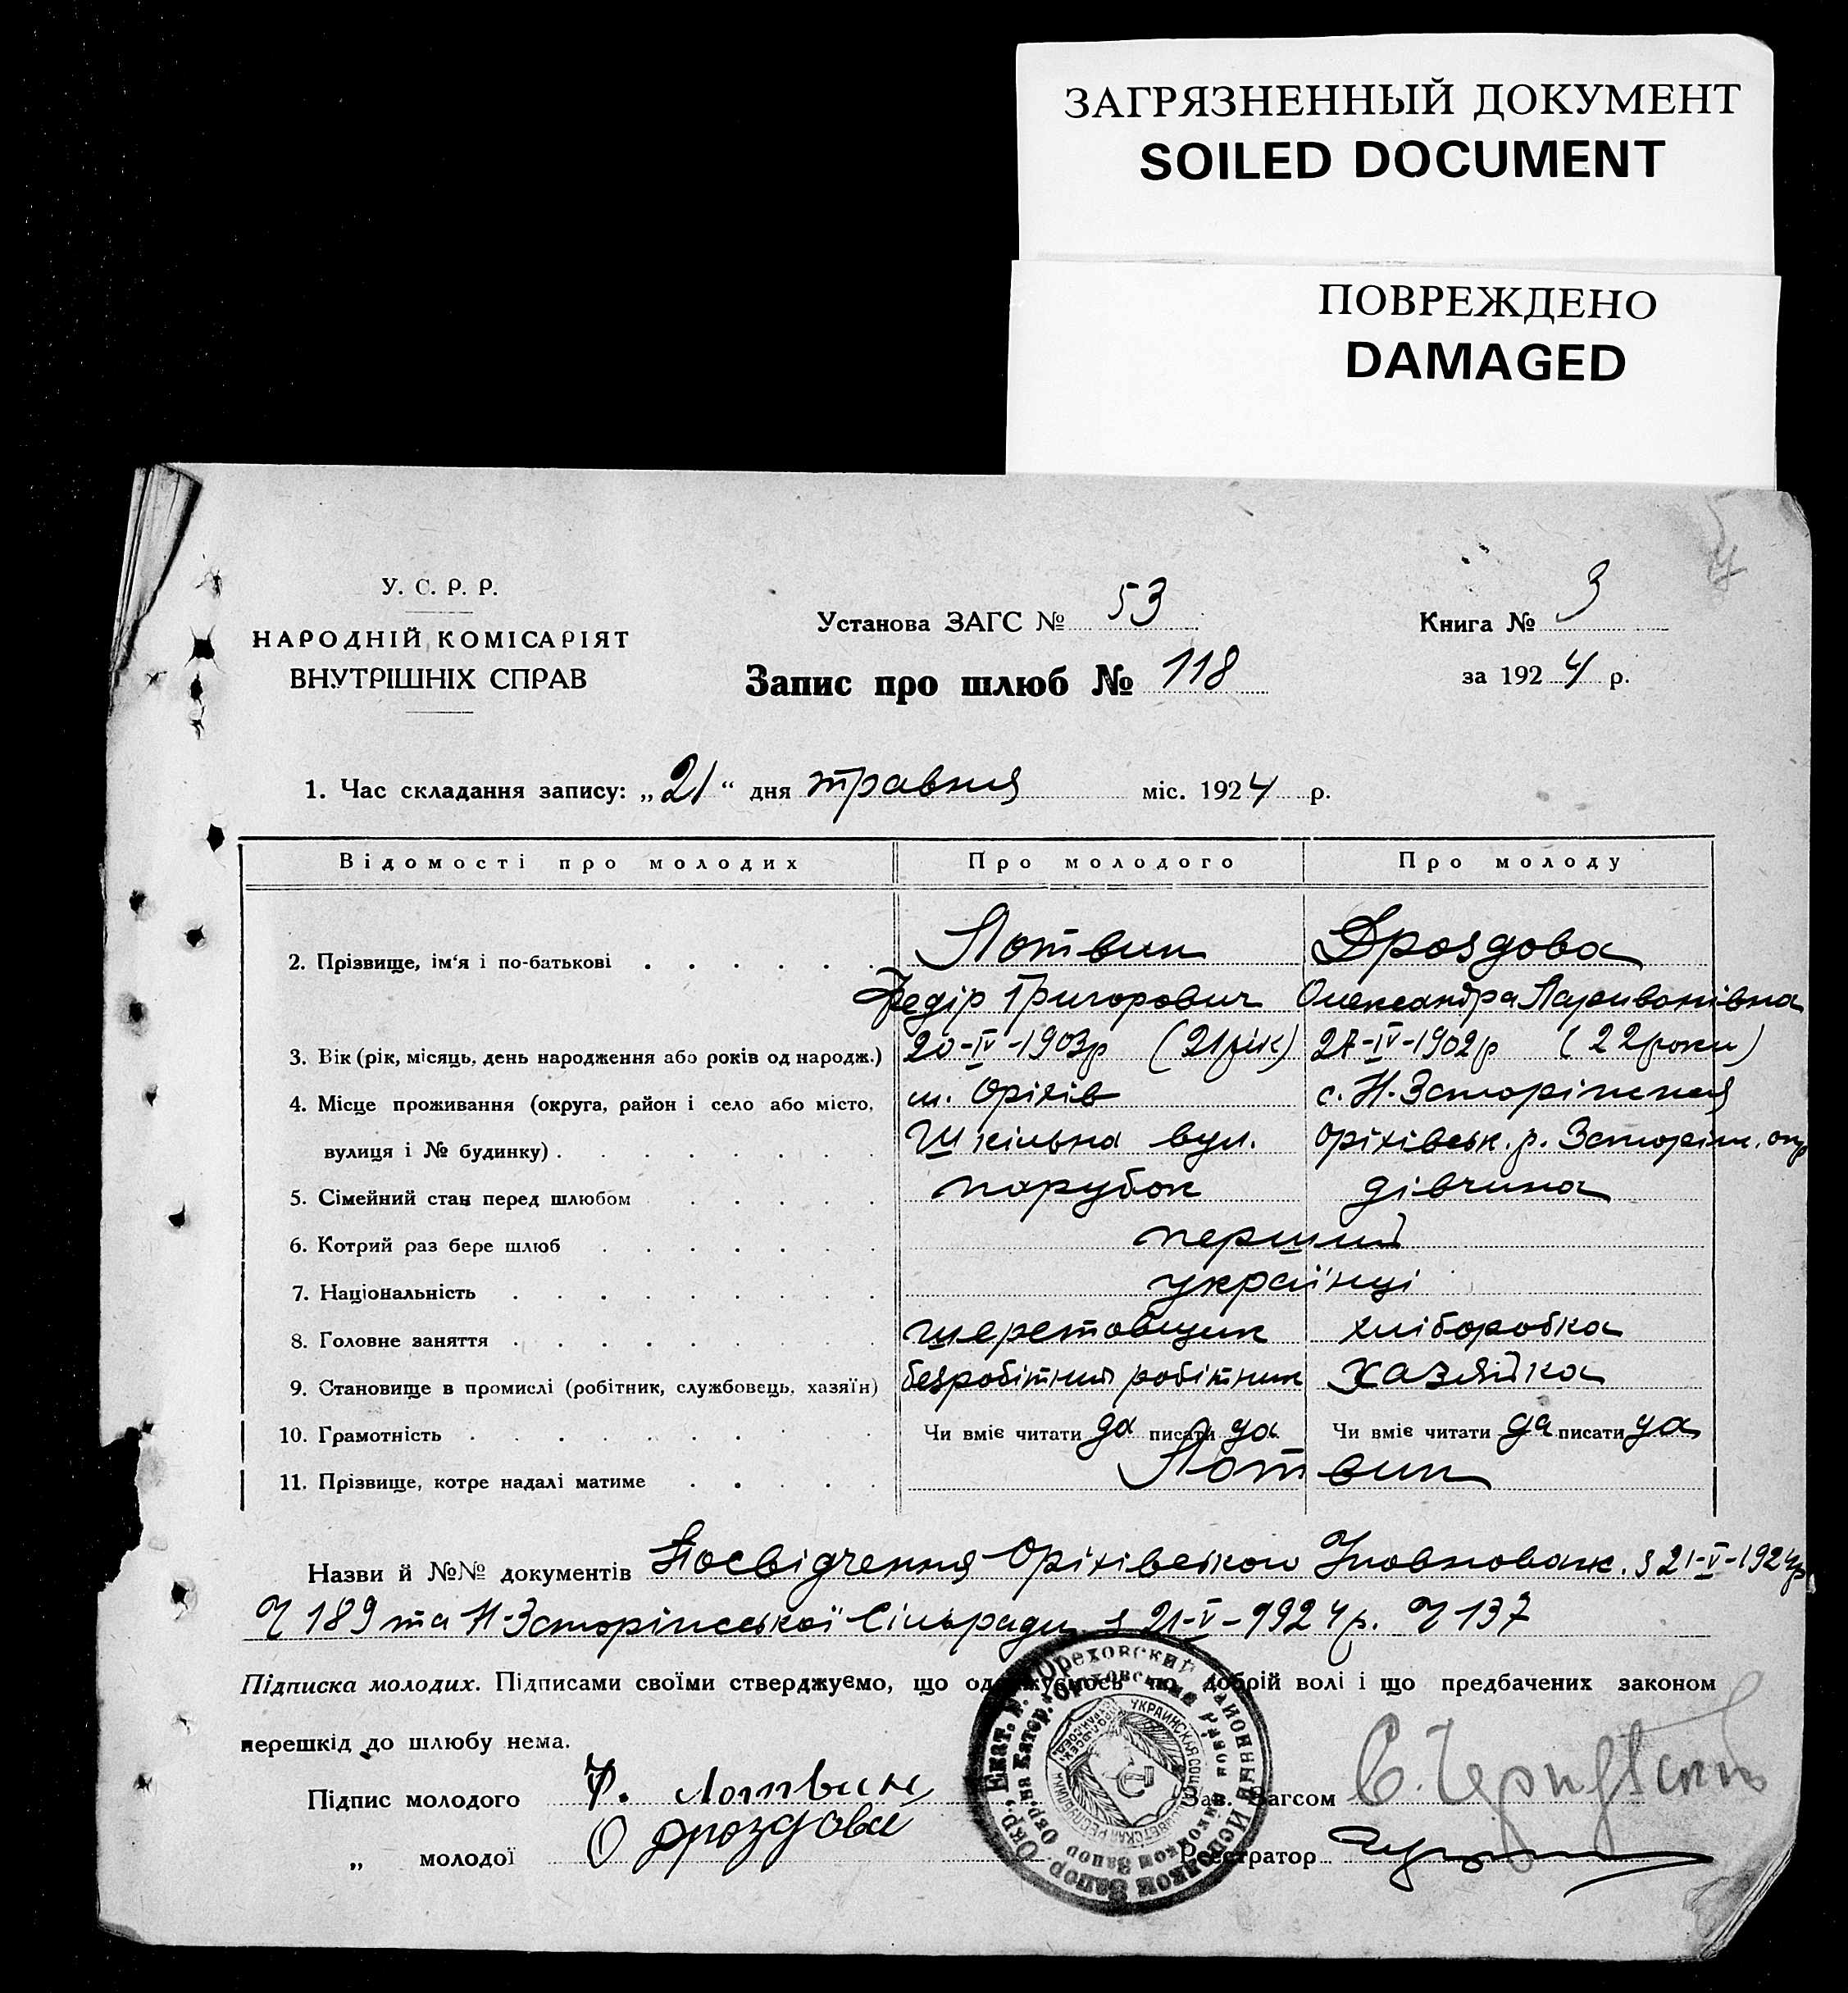 ЗАГРЯЗНЕННЫЙ ДОКУМЕНТ
SOILED DOCUMENT
ПОВРЕЖДЕНО
DAMAGED
У. С. Р. Р.
НАРОДНІЙ КОМІСАРІЯТ
ВНУТРІШНІХ СПРАВ
Установа ЗАГС № 53
Запис про шлюб № 118
Книга № 3
за 1924 р.
1. Час складання запису: „21“ дня травня міс. 1924 р.
Відомості про молодих Про молодого Про молоду
2. Прізвище, ім'я і по-батькові Лотвин Дроздова
Федір Григорович Олександра
3. Вік (рік, місяць, день народження або років од народж.) 20-IV-1903р (21 рік) 27-IV-1902р (22 роки)
4. Місце проживання (округа, район і село або місто, м. Оріхів с. Н.
вулиця і № будинку) Шкільна вул. Оріхівськ. р.
5. Сімейний стан перед шлюбом парубок дівчина
6. Котрий раз бере шлюб перший
7. Національність українці
8. Головне заняття шеретовщик хліборобка
9. Становище в промислі (робітник, службовець, хазяїн) безробітний робітник хазяйка
10. Грамотність Чи вміє читати да писати да Чи вміє читати да писати да
11. Прізвище, котре надалі матиме Лотвин
Назви й №№ документів Посвідчення Оріхівської з 21-V-1924р
Ч 189 та Сільради з 21-V-1924р. Ч 137
Підписка молодих. Підписами своїми стверджуємо, що одружуємось по добрій волі і що предбачених законом
перешкід до шлюбу нема.
Підпис молодого Ф. Лотвин
„ молодої О Дроздова
Зав. Загсом
Реєстратор